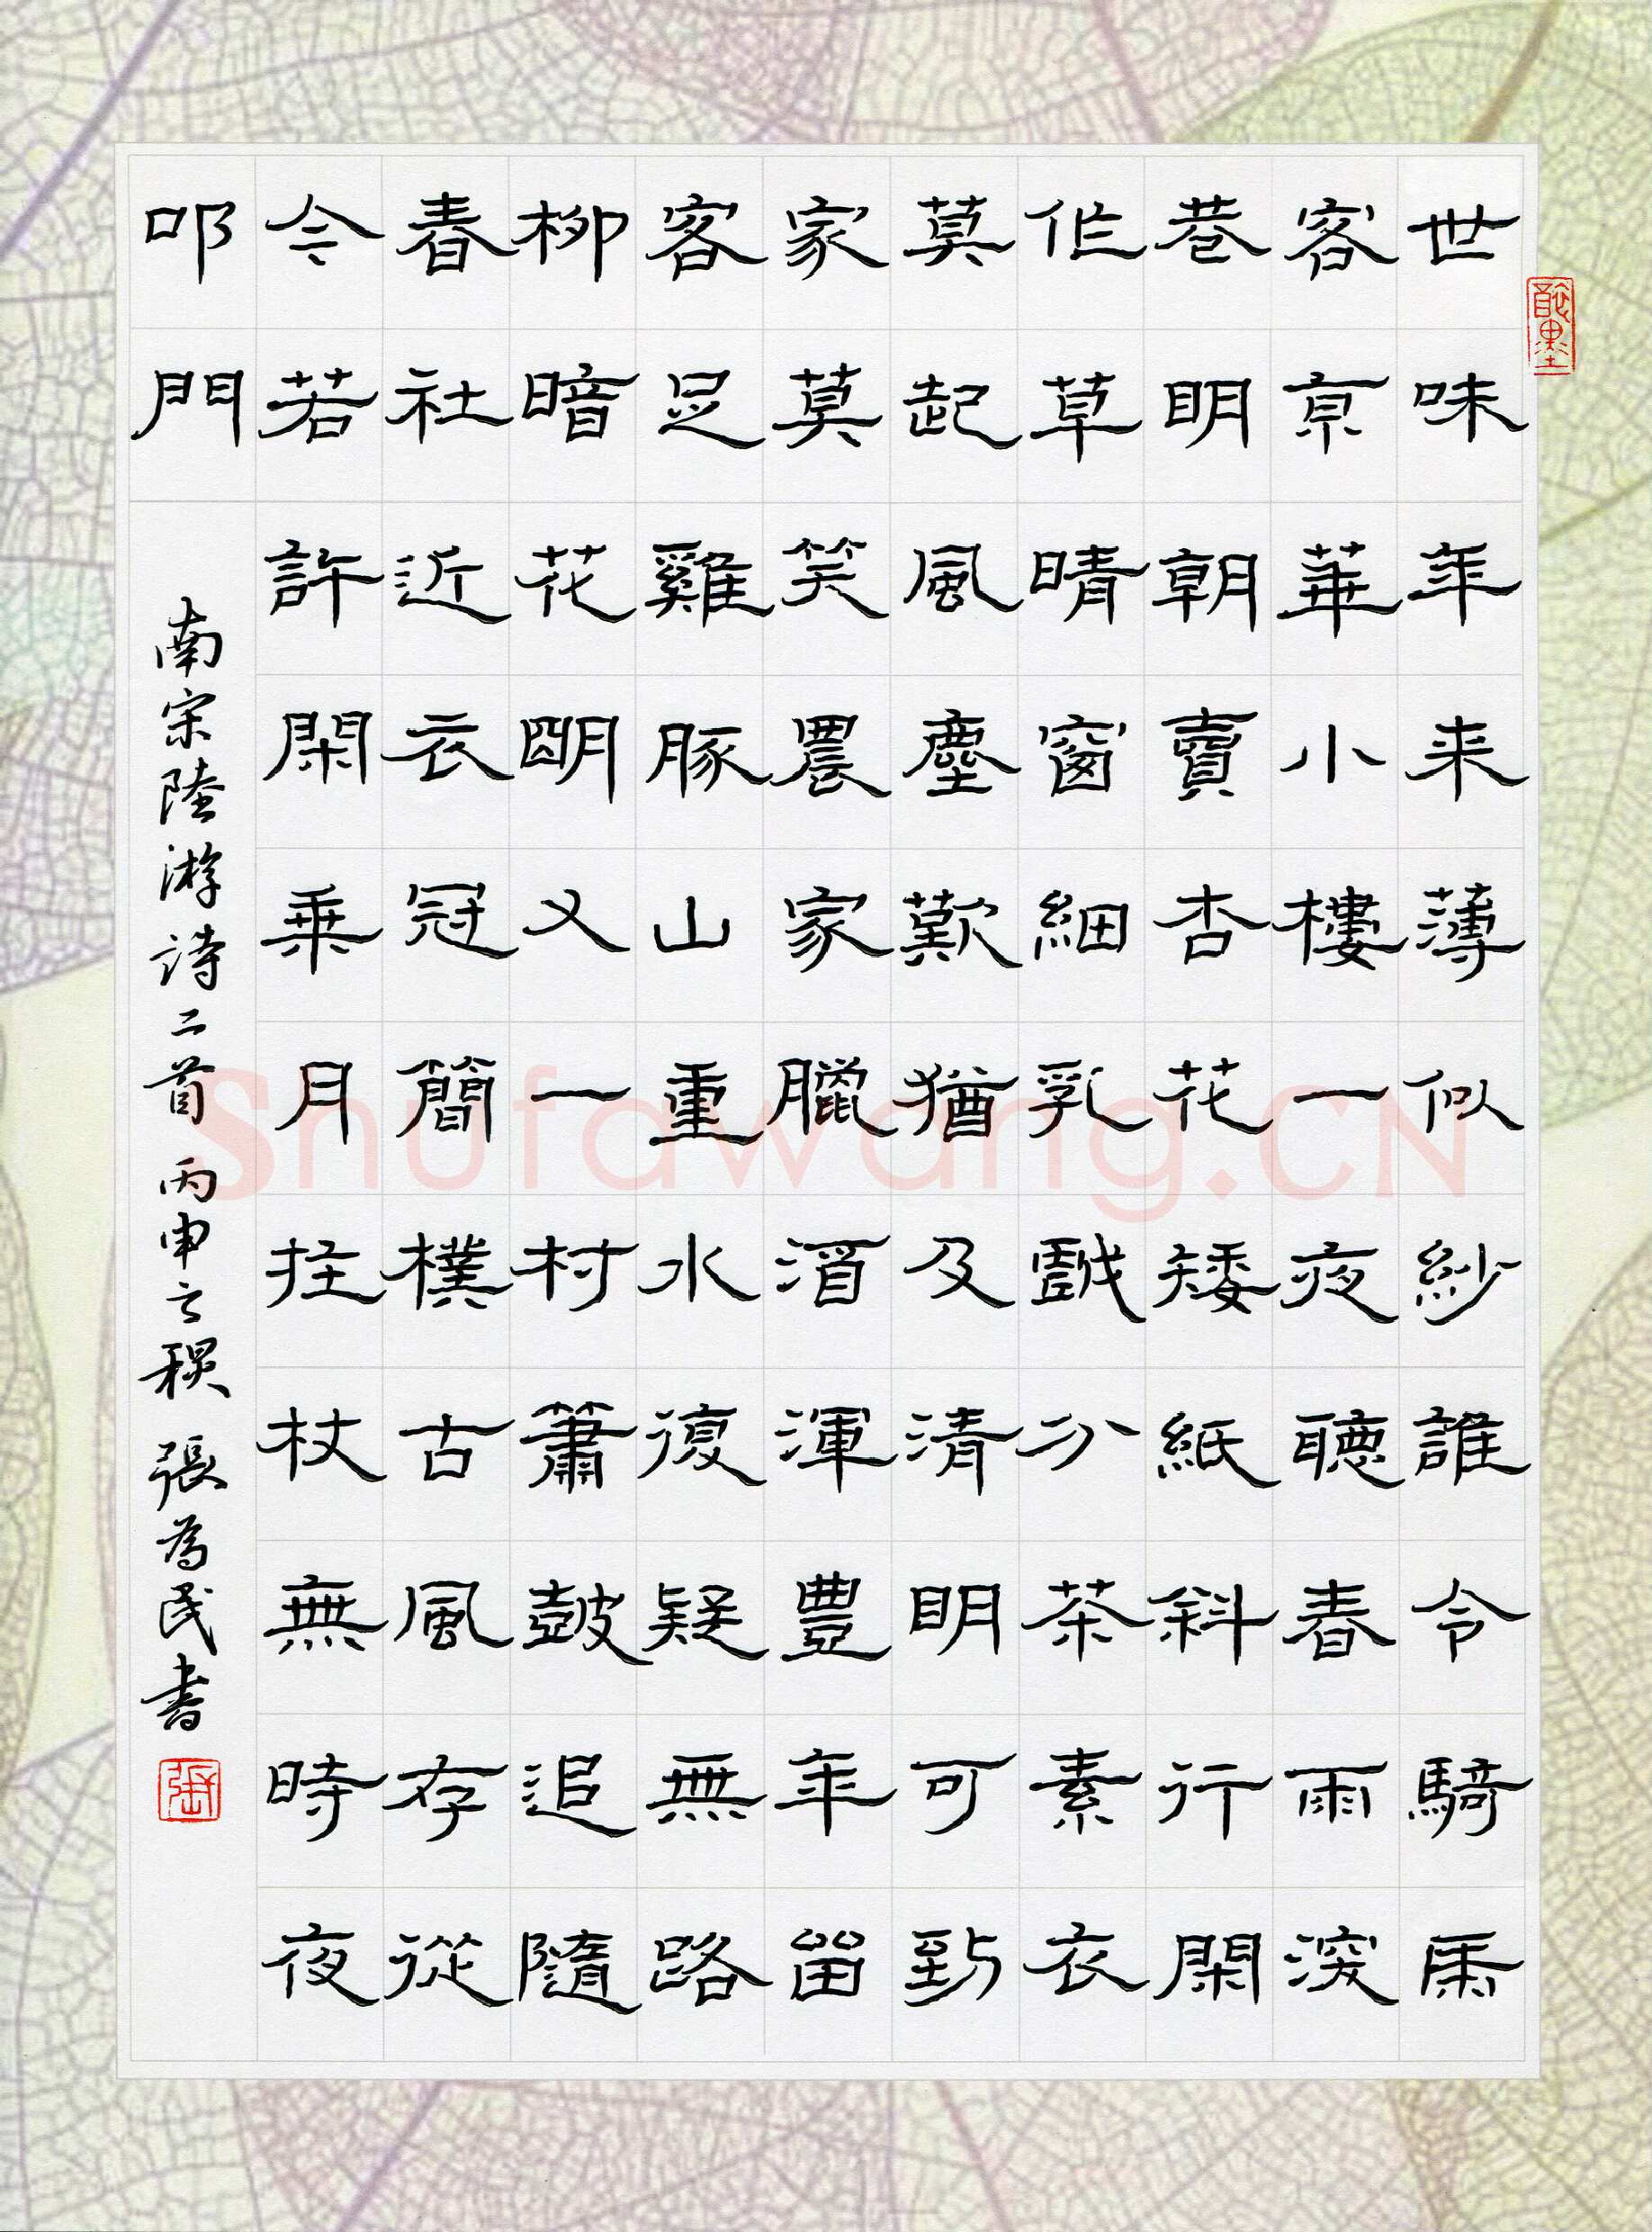 世味年来薄似紗誰令騎馬
客京華小樓一夜聽春雨深
巷明朝賣杏花矮紙斜行閑
作草晴窗細乳戲分茶素衣
莫起風塵歎猶及清明可到
家莫笑農家臘酒渾豐年留
客足雞豚山重水復疑無路
柳暗花明又一村簫鼓追隨
春社近衣冠簡樸古風存從
今若許閑乘月拄杖無時夜
叩門
南宋陸游詩二首 丙申之秋 張為民書
張
Shufawang.CN